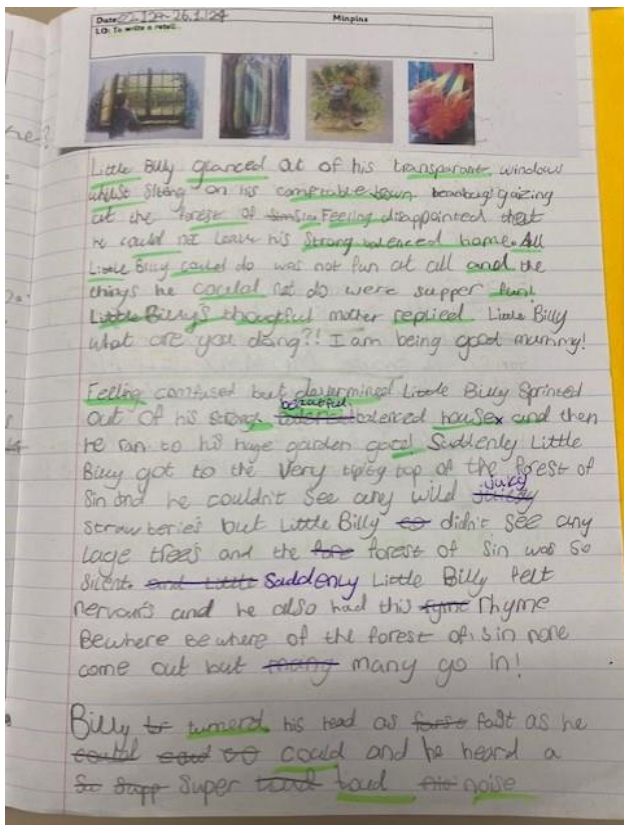 Date: 22.1.24-26.1.24
Minpins
LO: To write a retell.
Little Billy glanced out of his transparante window
whilst siting on his comfortable brown gaizing
at the forest of sin. Feeling disappointed that
he could not leave his strong balenced home. All
Little Billy could do was not fun at all and the
things he could not do were supper fun!
Little Billy's thoughtful mother replied. Little Billy
what are you doing?! I am being good mummy!
Feeling confused but determined Little Billy Sprinted
beautful
out of his strong balenced house and then
he ran to his huge garden gate! Suddenly Little
Billy got to the very tipity top of the forest of
juicy
Sin and he couldn't see any wild
strawberies but Little Billy didn't see any
lage trees and the forest of sin was so
silent. Suddenly Little Billy felt
nervours and he also had this rhyme
Bewhere bewhere of the forest of sin none
come out but many go in!
Billy turnerd his head as fast as he
could and he heard a
super loud noise